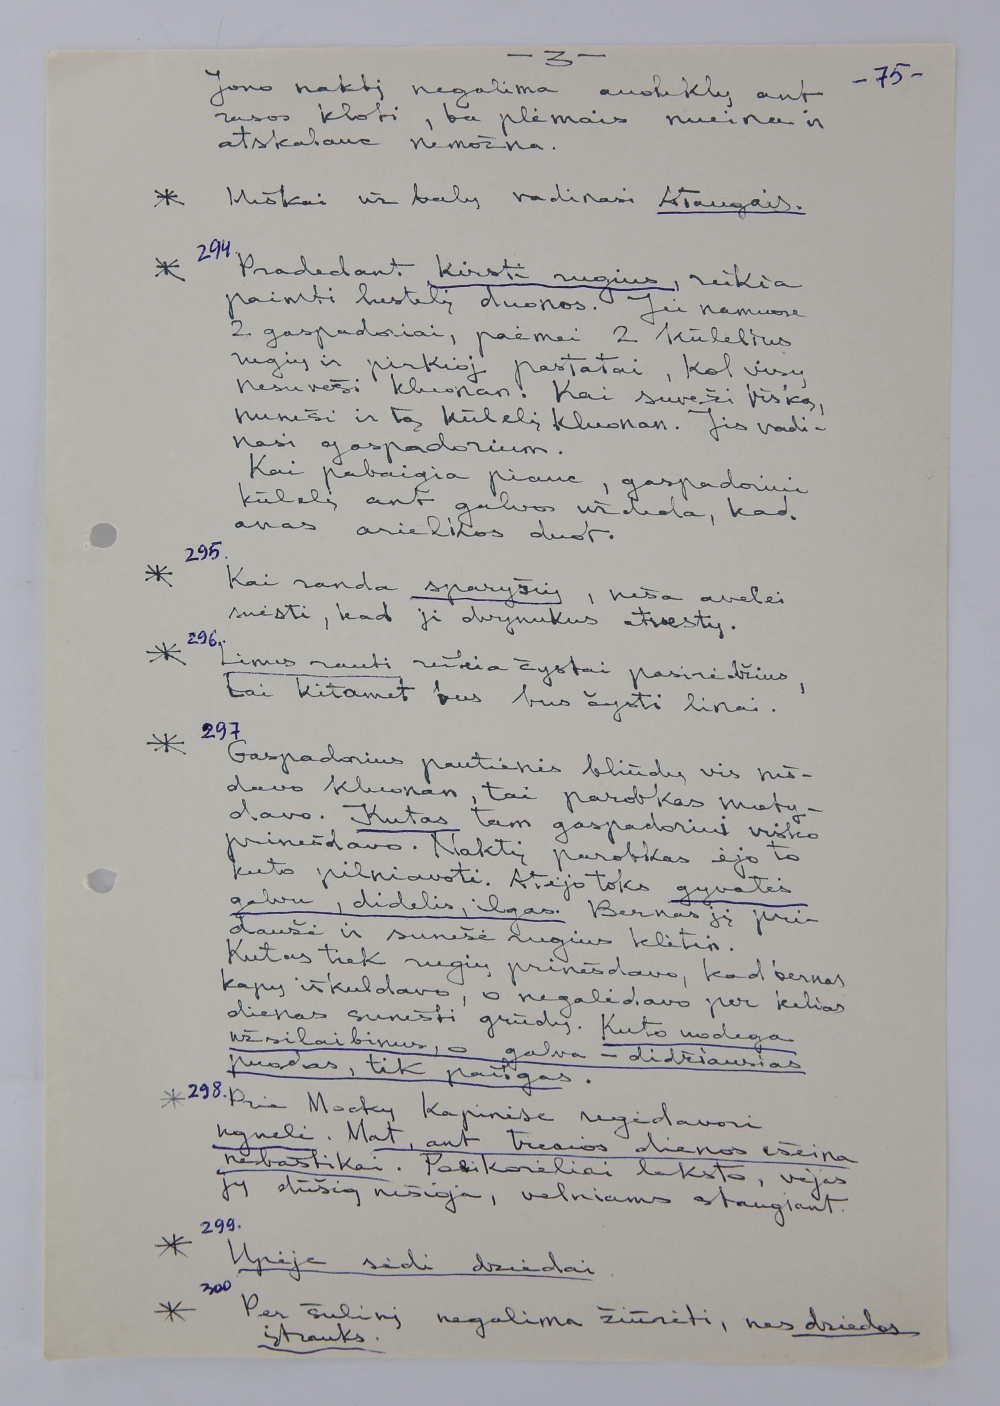 - 3 -
- 75 -
Jono naktį negalima audeklų ant
rasos kloti, ba plėmais nueina ir
atskalauc nemožna.
* Miškai už balų vadinasi Ataugais.
294.
* Pradedant kirsti rugius, reikia
paimti lustelį duonos. Jei namuose
2 gaspadoriai, paėmei 2 kūlelius
rugių ir pirkioj pastatai, kol visų
nesuveši kluonan. Kai suveži viską,
nuneši ir tą kūlelį kluonan. Jis vadi-
nasi gaspadorium.
Kai pabaigia piauc, gaspadoriui
kūlelį ant galvos uždeda, kad
anas arielkos duot.
295.
* Kai randa sparyšių, neša avelei
suėsti, kad ji dvynukus atvestų.
296.
* Linus rauti reikia čystai pasirėdžius,
tai kitamet bus čysti linai.
297
* Gaspadorius pautienės bliūdų vis neš-
davo kluonan, tai parobkas maty-
davo. Kutas tam gaspadoriui visko
prinešdavo. Naktį parobkas ėjo to
kuto pilniavoti. Atėjo toks gyvatės
galvu, didelis, ilgas. Bernas jį pri-
daušė ir sunešė rugius klėtin.
Kutas tiek rugių prinešdavo, kad bernas
kapų iškuldavo, o negalėdavo per kelias
dienas sunešti grūdų. Kuto uodega
užsilaibinus, o galva - didžiausias
puodas, tik pailgas.
298.
* Prie Mockų kapinėse regėdavori
ugnelį. Mat, ant trecios dienos ešeina
nebaštikai. Pasikorėliai laksto, vėjas
jų dūšią nešioja, velniams staugiant.
299.
* Upėje sėdi dziedai
300
* Per šulinį negalima žiūrėti, nes dziedas
įtrauks.